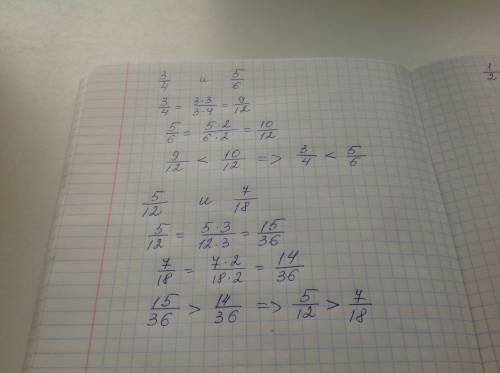 3/4 и 5/6
3/4 = 3·3/3·4 = 9/12
5/6 = 5·2/6·2 = 10/12
9/12 < 10/12 => 3/4 < 5/6
5/12 и 7/18
5/12 = 5·3/12·3 = 15/36
7/18 = 7·2/18·2 = 14/36
15/36 > 14/36 => 5/12 > 7/18
1/2